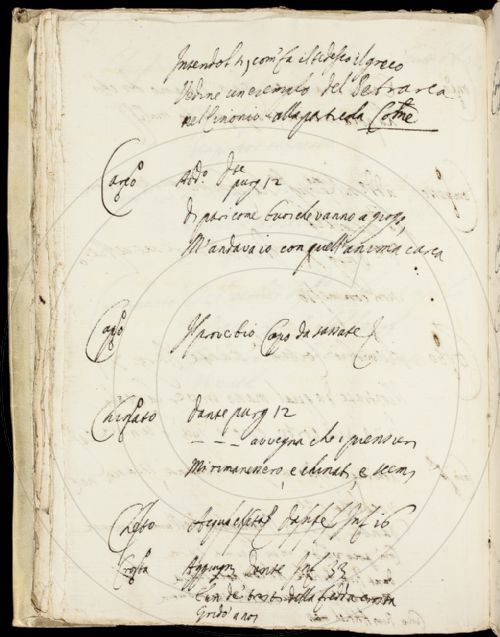 Intendoli, com' fa il tedesco il greco
Vedine un esemplo del Petrarca
nel Cinonio alla particola Come
Carco Add.º Dte
purg 12
Di pari come buoi che vanno a giogo,
M'andava io con quell'anima carca
Capo Il proverbio Capo da sassate
Chinato Dante purg 12
_ _ _ avvegna che i pensieri
Mi rimanessero, e chinati, e scemi
Cheto Acqua Dante Inf 16
Crosta Aggiugni Dante Inf 33
E un de' tristi della fredda crosta
Gridò a noi